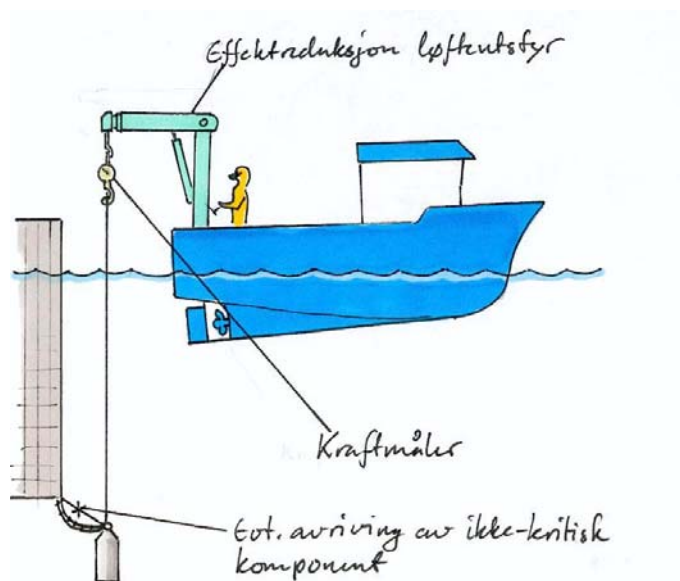 Effektreduksjon løfteutstyr
Kraftmåler
Evt. avriving av ikke-kritisk
komponent